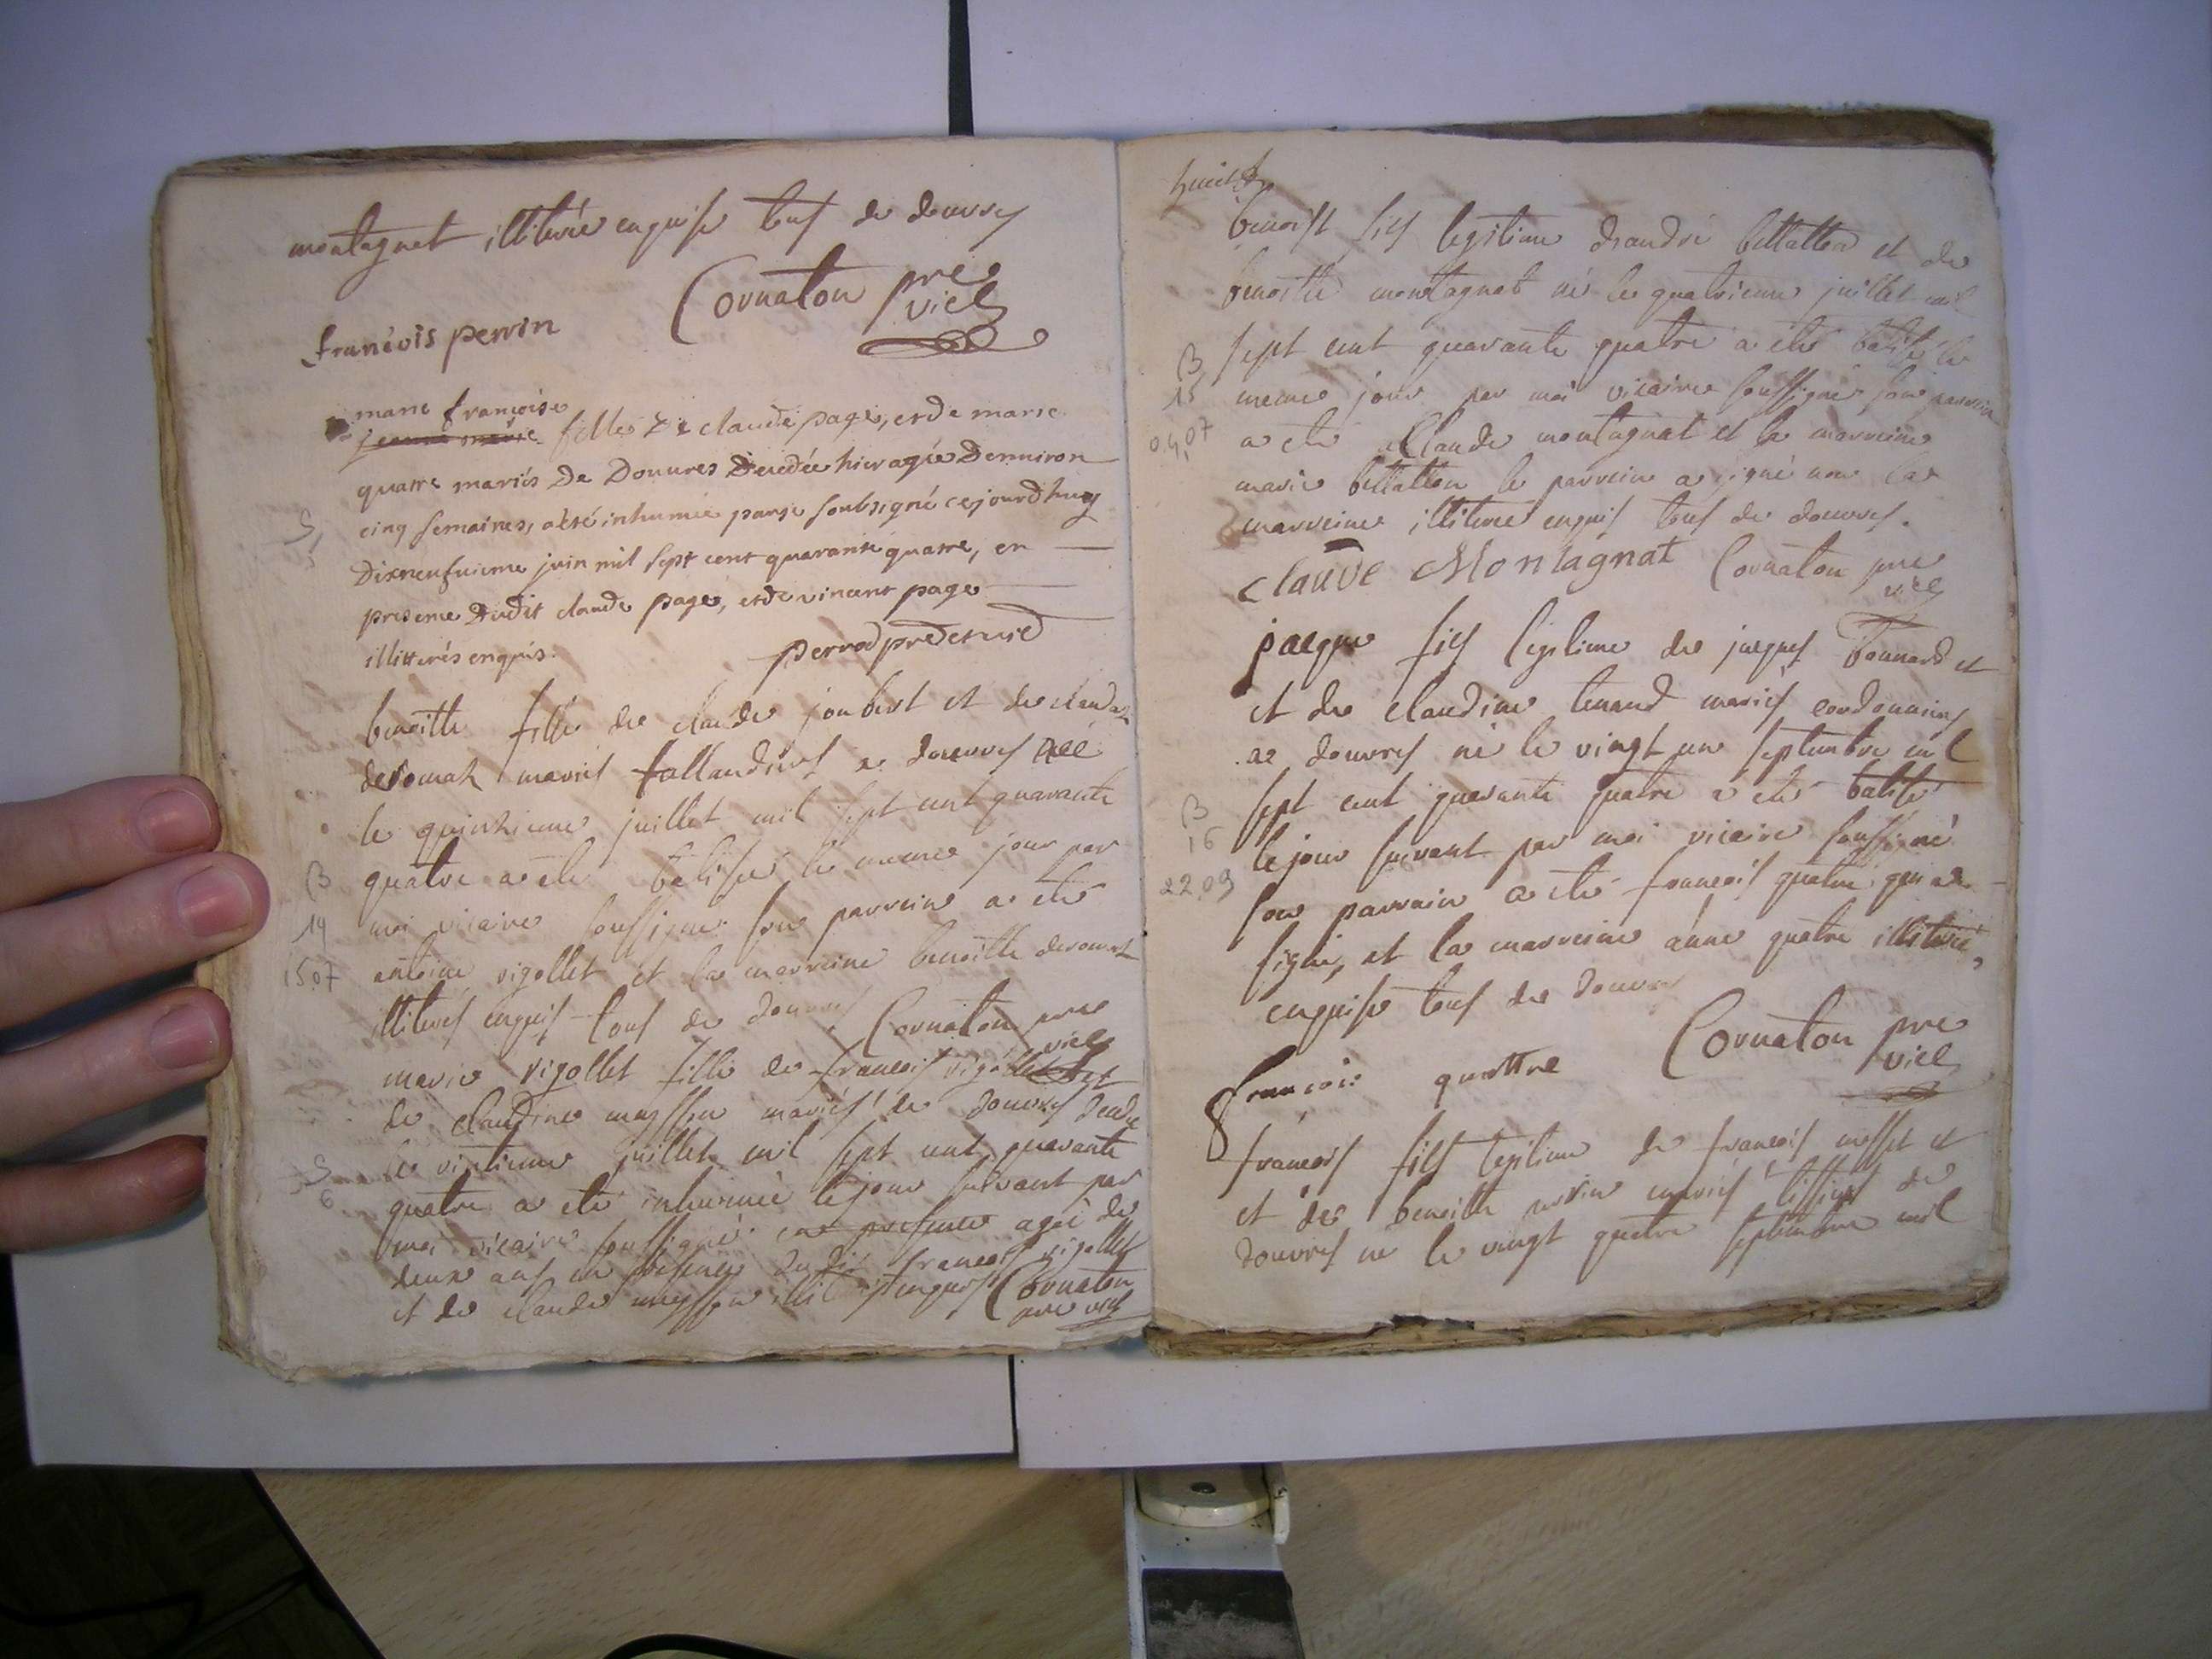 montagnat illiterée enquise tous de douvres
Cornaton pre
vic
francois perrin
marie francoise
jeanne marie fille de claude page, et de marie
quatre mariés De Douures Decedée hier agée Denuiron
S,
cinq semaines, a été inhumée par je soubsigné cejourdhuy
Dixneufuieme juin mil sept cent quarante quatre, en
presence Dudit claude page, et de vincent page
illitterés enquis. perrod pre
benoitte fille de claude joubert et de clauda
deromaz mariés de douvres née
le quinzieme juillet mil sept cent quarante
B
quatre a eté batisée le meme jour par
19
moi vicaire soussigné son parrein a eté
15.07
antoine rigollet et la marreine benoitte
illiterés enquis tous de douvres Cornaton pre
vic
marie rigollet fille de francois rigollet et
de claudine mariés de douvres
S
le vintieme juillet mil sept cent quarante
6
quatre a eté inhumée le jour suivant par
moi vicaire soussigné en presence ageé de
deux ans en presence dudit francois rigollet
et de claude enquis Cornaton
pre vic
huict
benoist fils legitime d'andré bellatton et de
benoitte montagnat né le quatrieme juillet mil
B
sept cent quarante quatre a eté batisé le
15
meme jour par moi vicaire soussigné son parrein
04,07
a eté Claude montagnat et la marreine
marie bellatton le parrein a signé non la
marreine illiteree enquis tous de douvres.
Claude Montagnat Cornaton pre
vic
jacque fils legitime de jacques Bonnard et
et de claudine tenand mariés cordonniers
de douvres né le vingt un septembre mil
B
sept cent quarante quatre a eté batisé
16
le jour suivant par moi vicaire soussigné
22.09
son parrain a eté francois quatre qui a
signé, et la marreine anne quatre illiterée,
enquise tous de douvres
Cornaton pre
vic
francois quattre
francois fils legitime de francois et
et de benoitte mariés tissiers de
douvres né le vingt quatre septembre mil